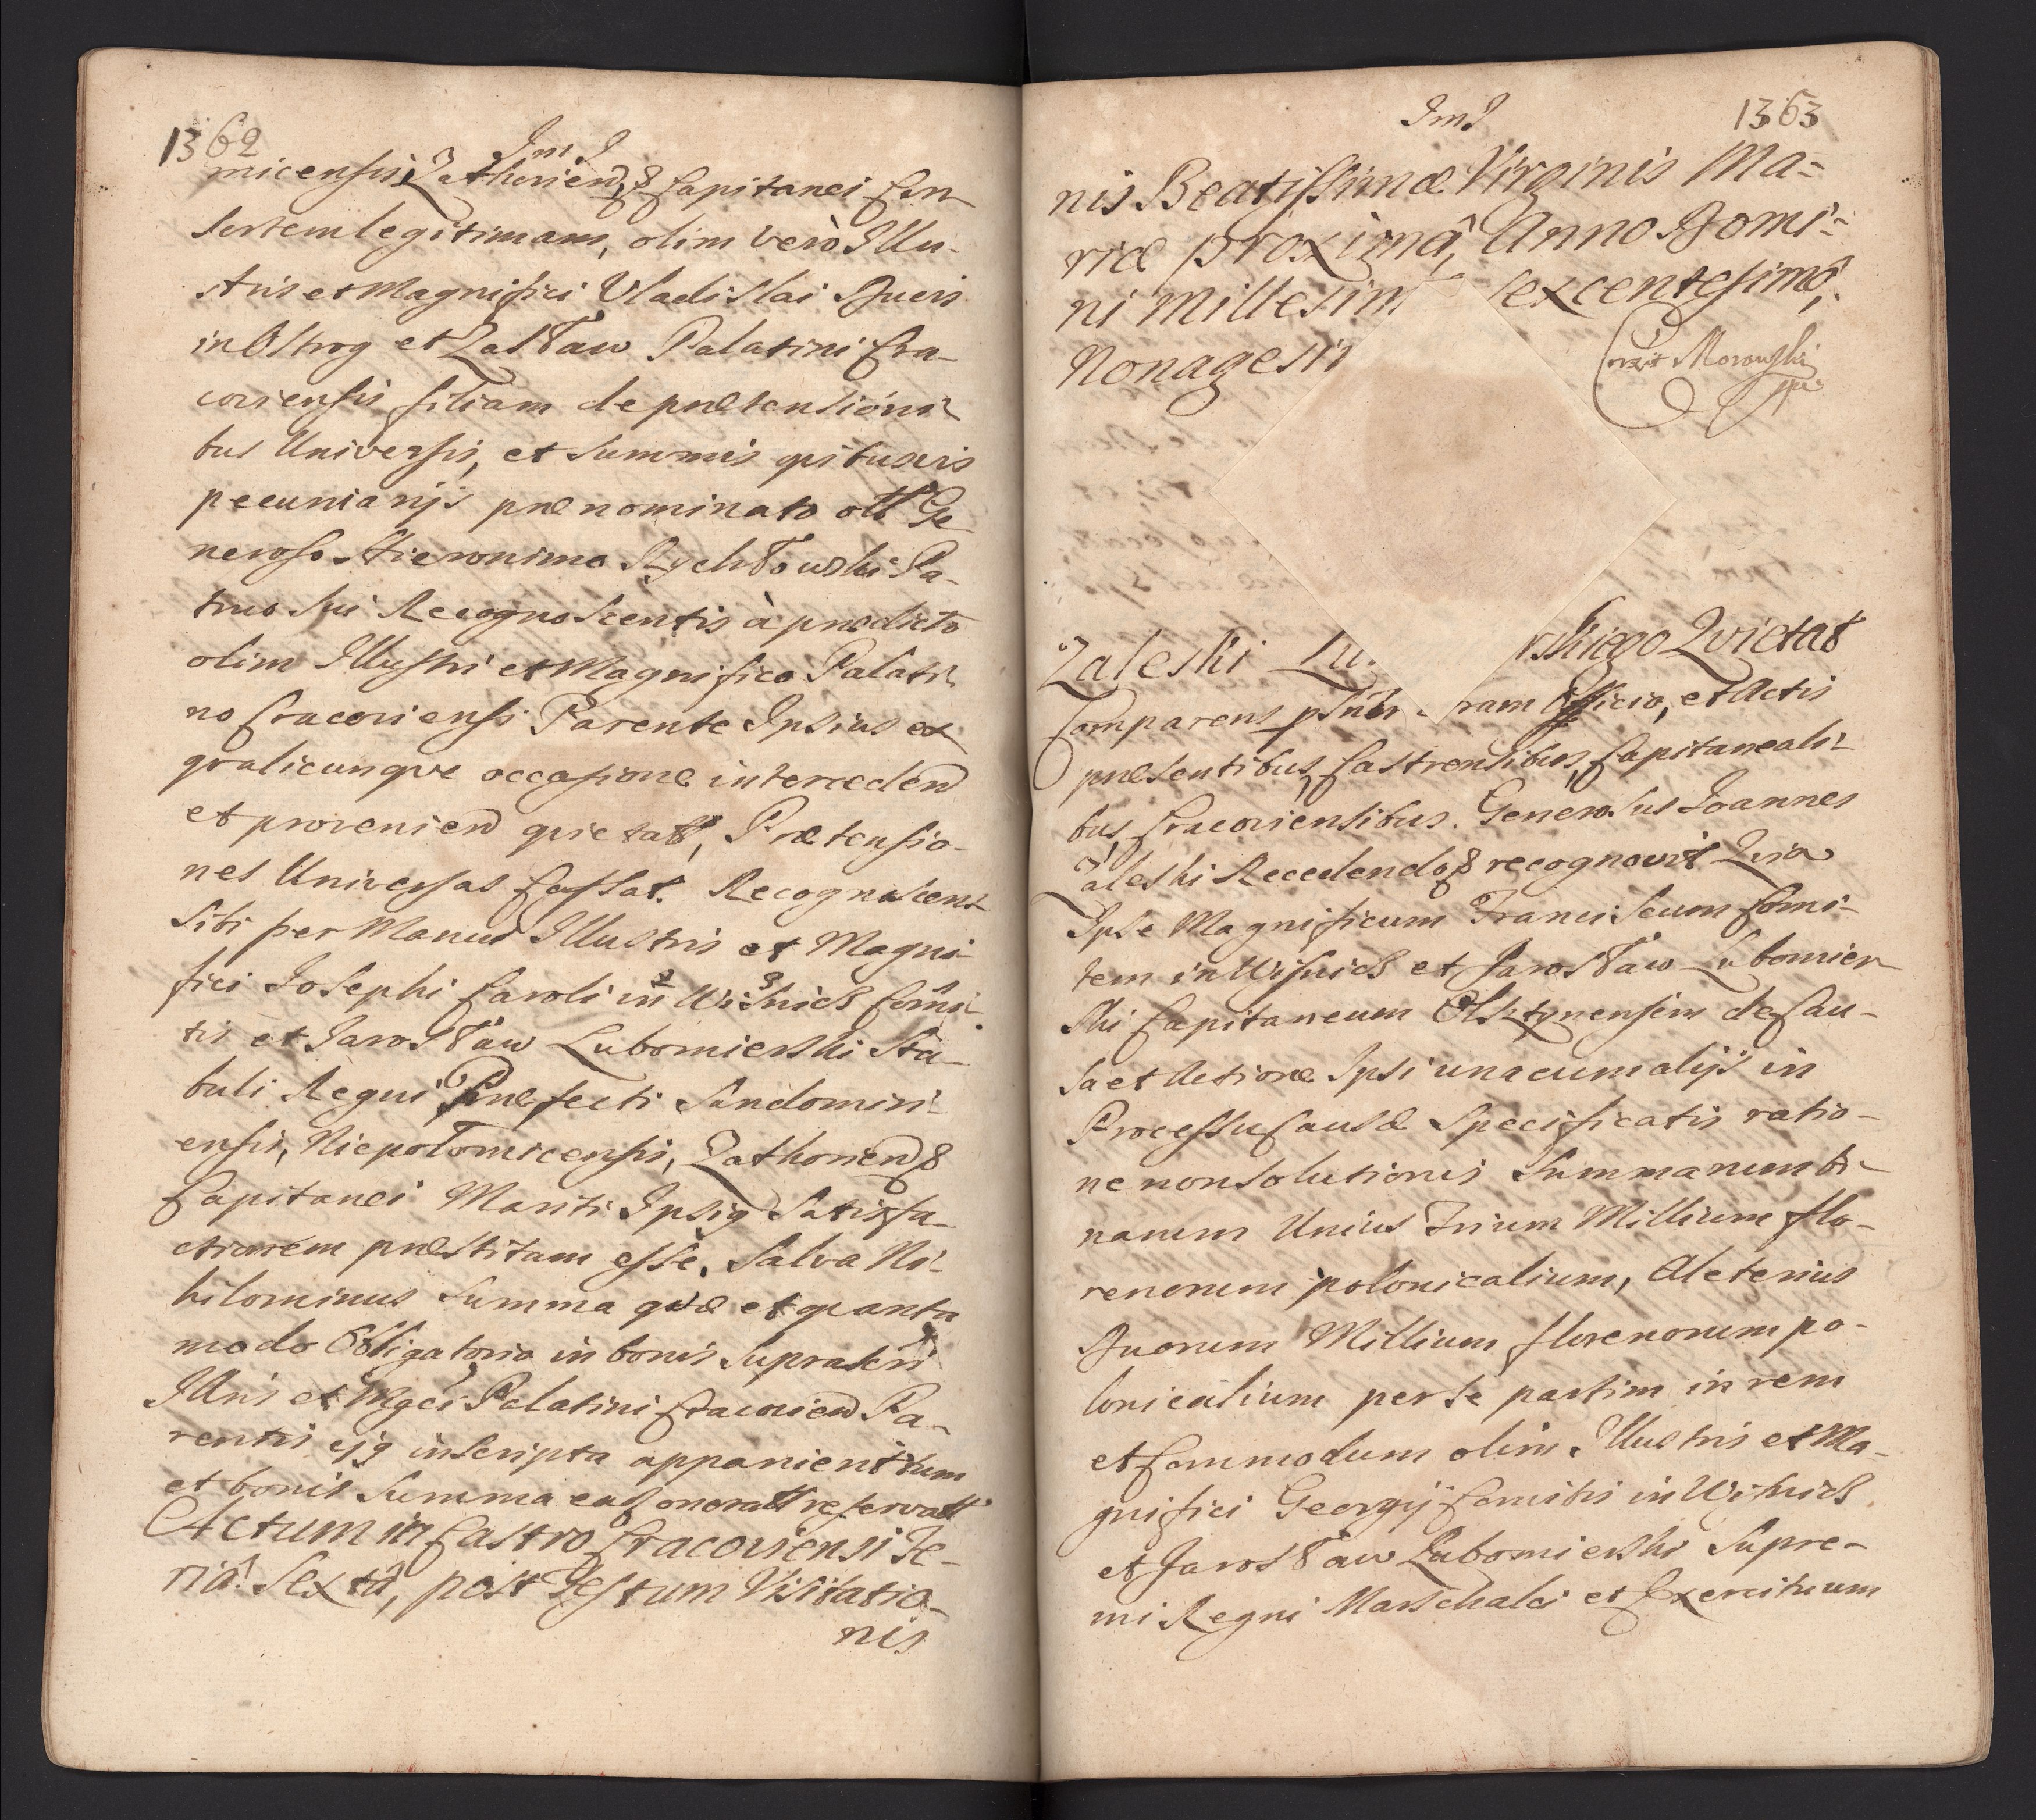 1362
ImI
micensis Zathorien & Capitanei Con-
sortem legitimam, olim verò Illu-
stris et Magnifici Vladislai Ducis
in Ostrog et Zasław Palatini Cra-
coviensis filiam de prætensioni-
bus Universis, et summis qnibusvis
pecuniarijs prænominato olim Ge-
neroso Hieronimo Rychłowski Pa-
truo sui Recognoscentis à prædicto
olim Illustri et Magnifico Palati-
no Cracoviensi Parente Ipsius ex
qualicunque occasione interceden
et provenien quietatt, Prætensio-
nes Universas Cassat. Recognoscens
sibi per Manus Illustris et Magni-
fici Josephi Caroli in Wisnicz Comi-
tis et Jarosław Lubomierski Sta-
buli Regni Præfecti Sandomiri-
ensis, Niepołomicensis, Zathorien &
Capitanei Mariti Ipsiq Satisfa-
ctionem præstitam esse. Salva Ni-
hilominus summa quæ et quanta
modo Obligatorio in bonis suprascri
Illris et Mgci Palatini Cracovien Pa-
rentis ejq inscripta apparuerit tum
et bonis summa eaq oneratt reservatt
Actum in Castro Cracoviensi Fe-
riâ Sextâ, post Festum Visitatio-
nis
ImI
1363
nis Beatissimæ Virginis Ma-
riæ proximâ, Anno Domi-
ni Millesim sexcentesimô,
Nonagesi
Zaleski Lu. rskiego Qvietat
Comparens ram Officio, et Actis
præsentibus, Castrensibus, Capitaneali-
bus, Cracoviensibus. Generosus Joannes
Zaleski Recedendo & recognovit Quia
Ipse Magnificum Franciscum Comi-
tem in Wisnicz et Jarosław Lubomier-
ski Capitaneum Olsztynensem de Cau-
sa et Actione Ipsi unacum alijs in
Processu Causæ Specificatis ratio-
ne non Solutionis Summarum bi-
narum Unius Trium Millium flo-
renorum polonicalium, Alterius
Duorum Millium florenorum po-
lonicalium per se partim in rem
et Commodum olim Illustris et Ma-
gnifici Georgij Comitis in Wisnicz
et Jarosław Lubomierski Supre-
mi Regni Marschalci et Exercituum